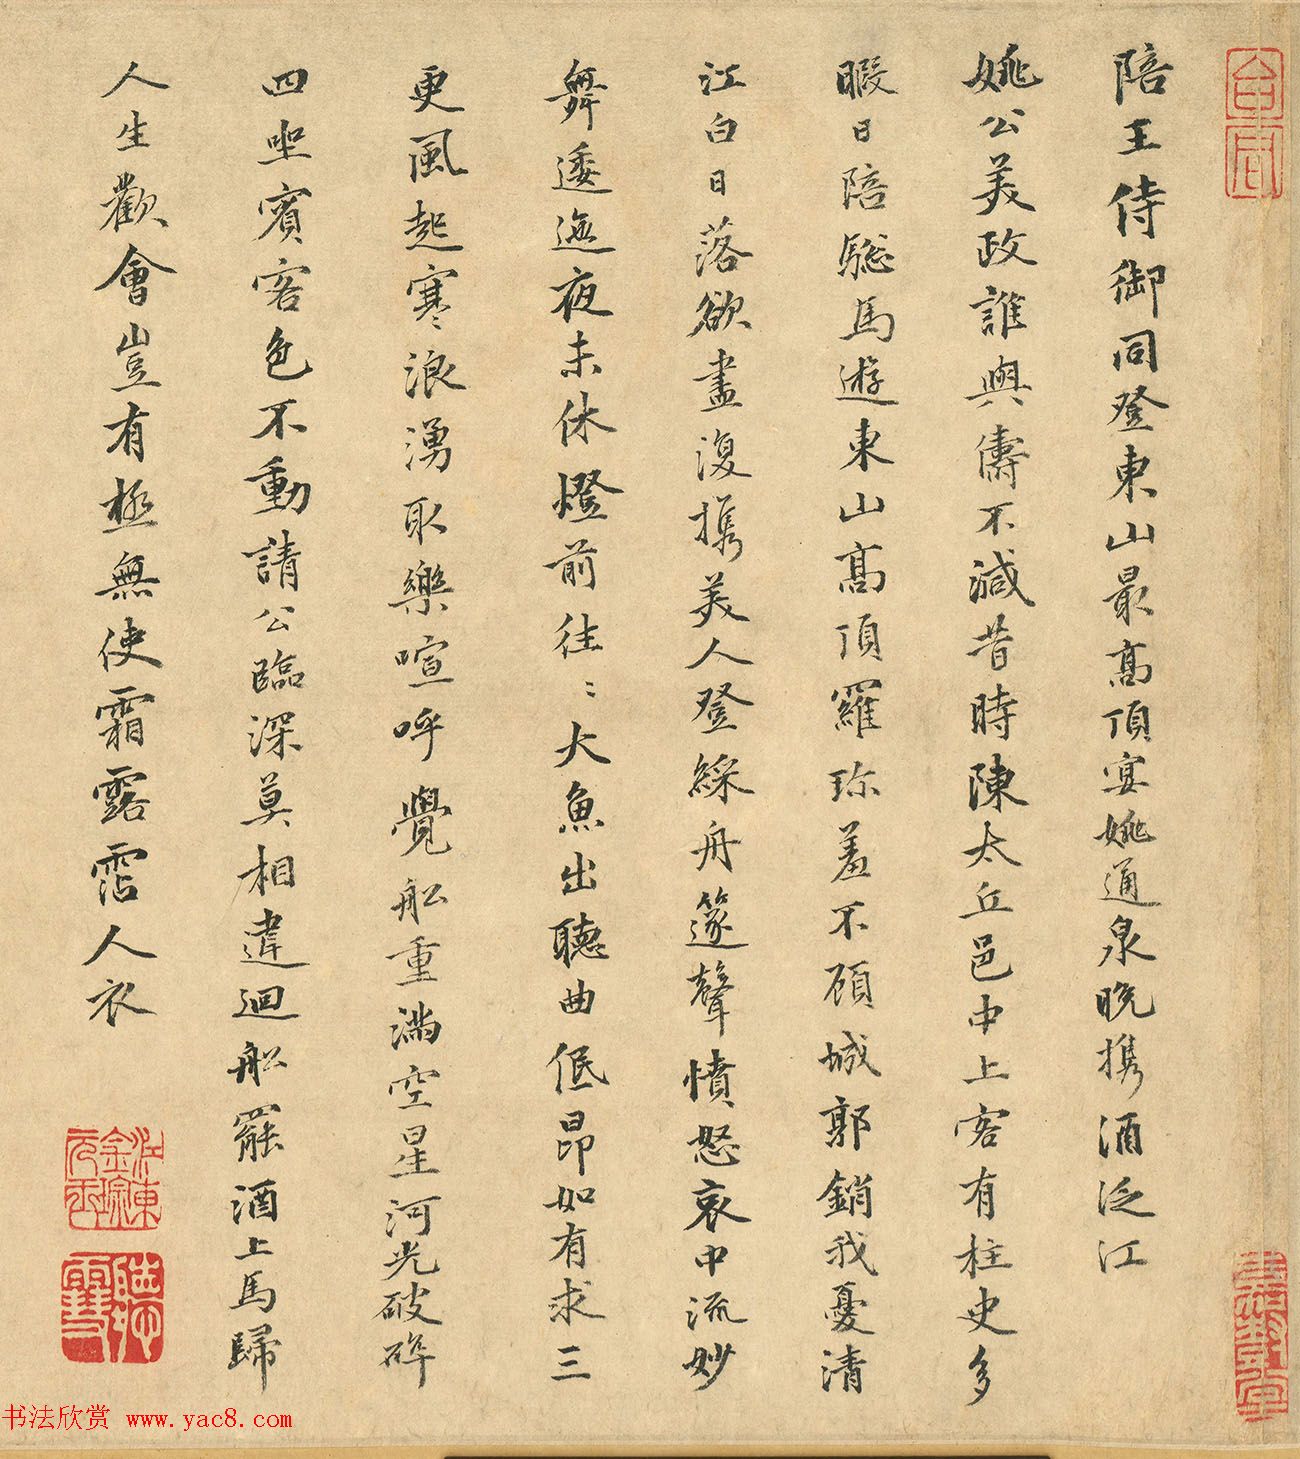 陪王侍御同登東山最高頂宴姚通泉晚携酒泛江
姚公美政誰與儔不減昔時陳太丘邑中上客有柱史多
暇日陪驄馬遊東山高頂羅珎羞不顧城郭銷我憂清
江白日落欲盡復携美人登綵舟篴聲憤怒哀中流妙
舞逶迤夜未休燈前往〻大魚出聽曲低昂如有求三
更風起寒浪湧取樂喧呼覺船重滿空星河光破碎
四坐賓客色不動請公臨深莫相違迴船罷酒上馬歸
人生歡會豈有極無使霜露霑人衣
书法欣赏 www.yac8.com